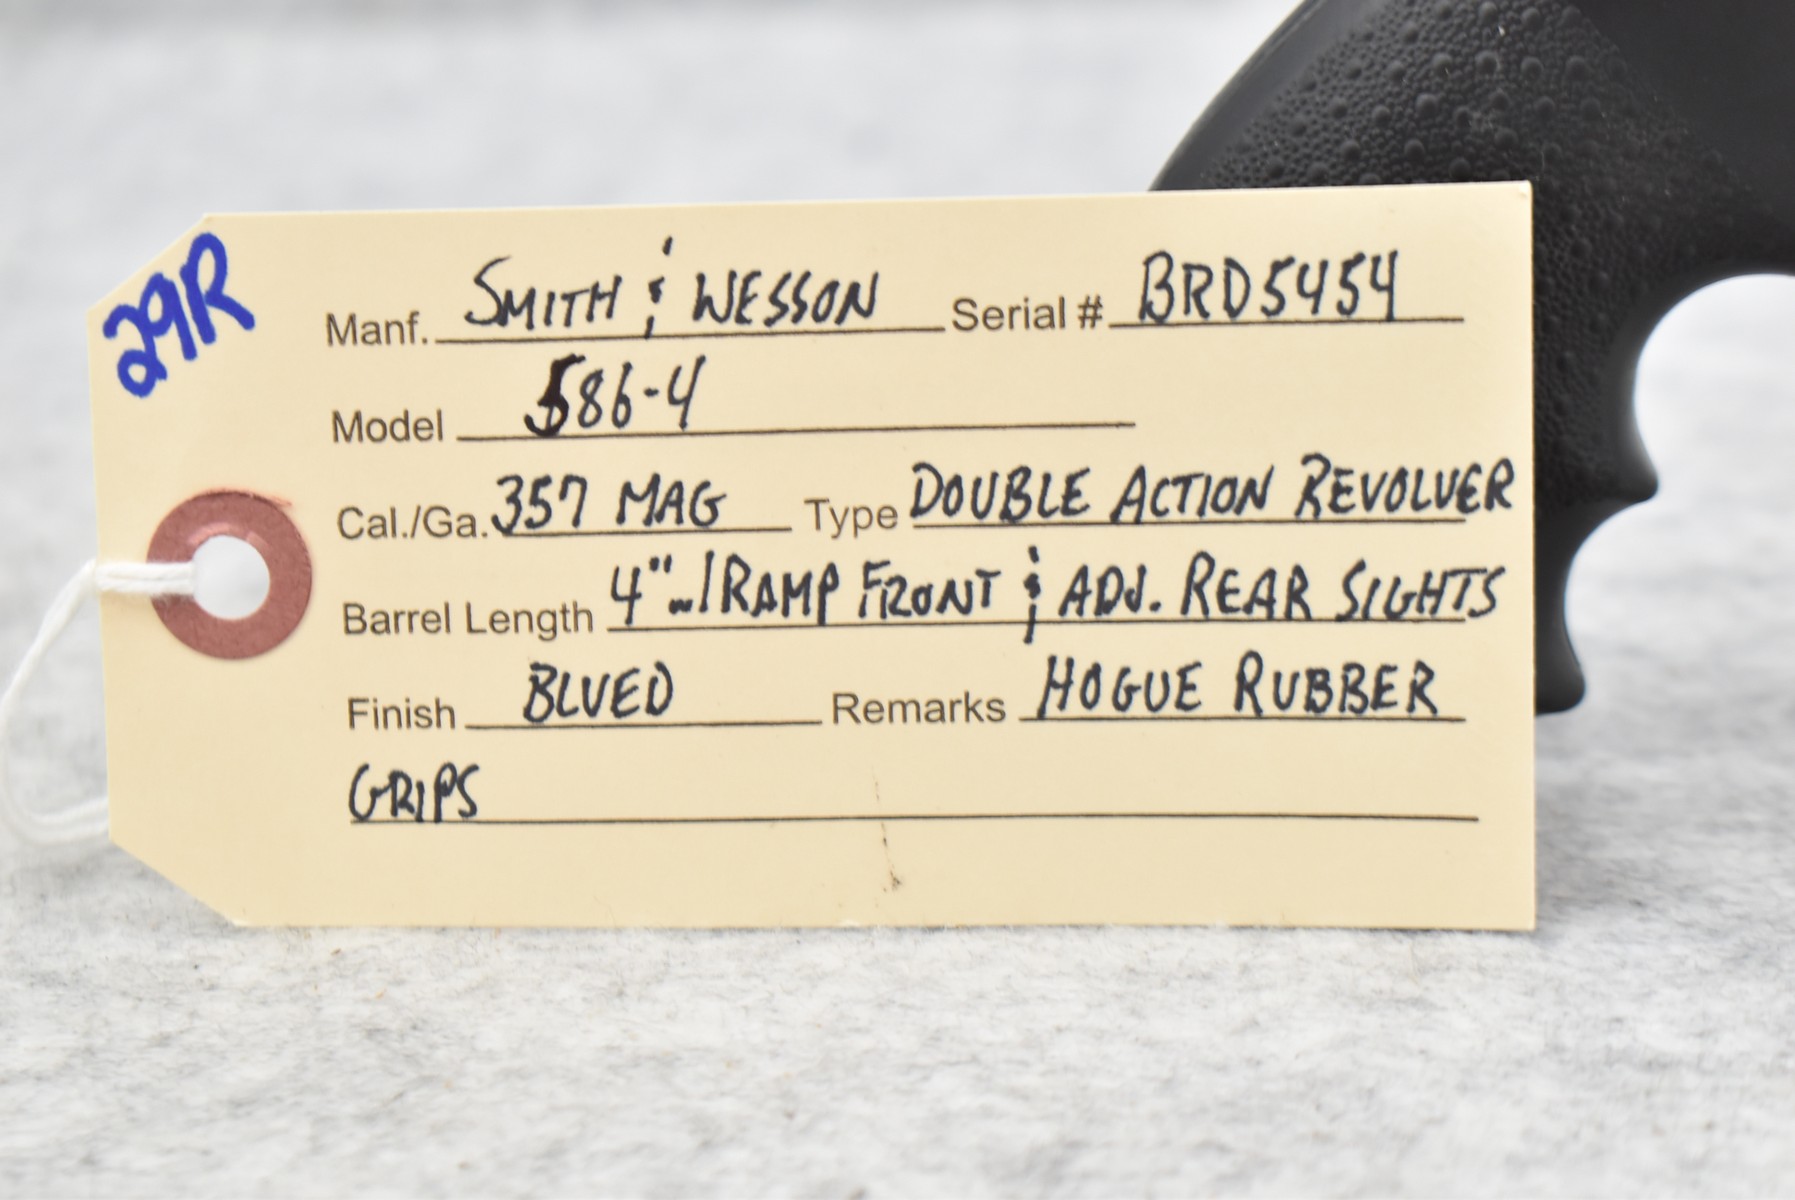 29R
Manf. SMITH & WESSON Serial # BRD5454
Model 586-4
Cal./Ga. 357 MAG Type DOUBLE ACTION REVOLVER
Barrel Length 4" w/ RAMP FRONT & ADJ. REAR SIGHTS
Finish BLUED Remarks HOGUE RUBBER
GRIPS